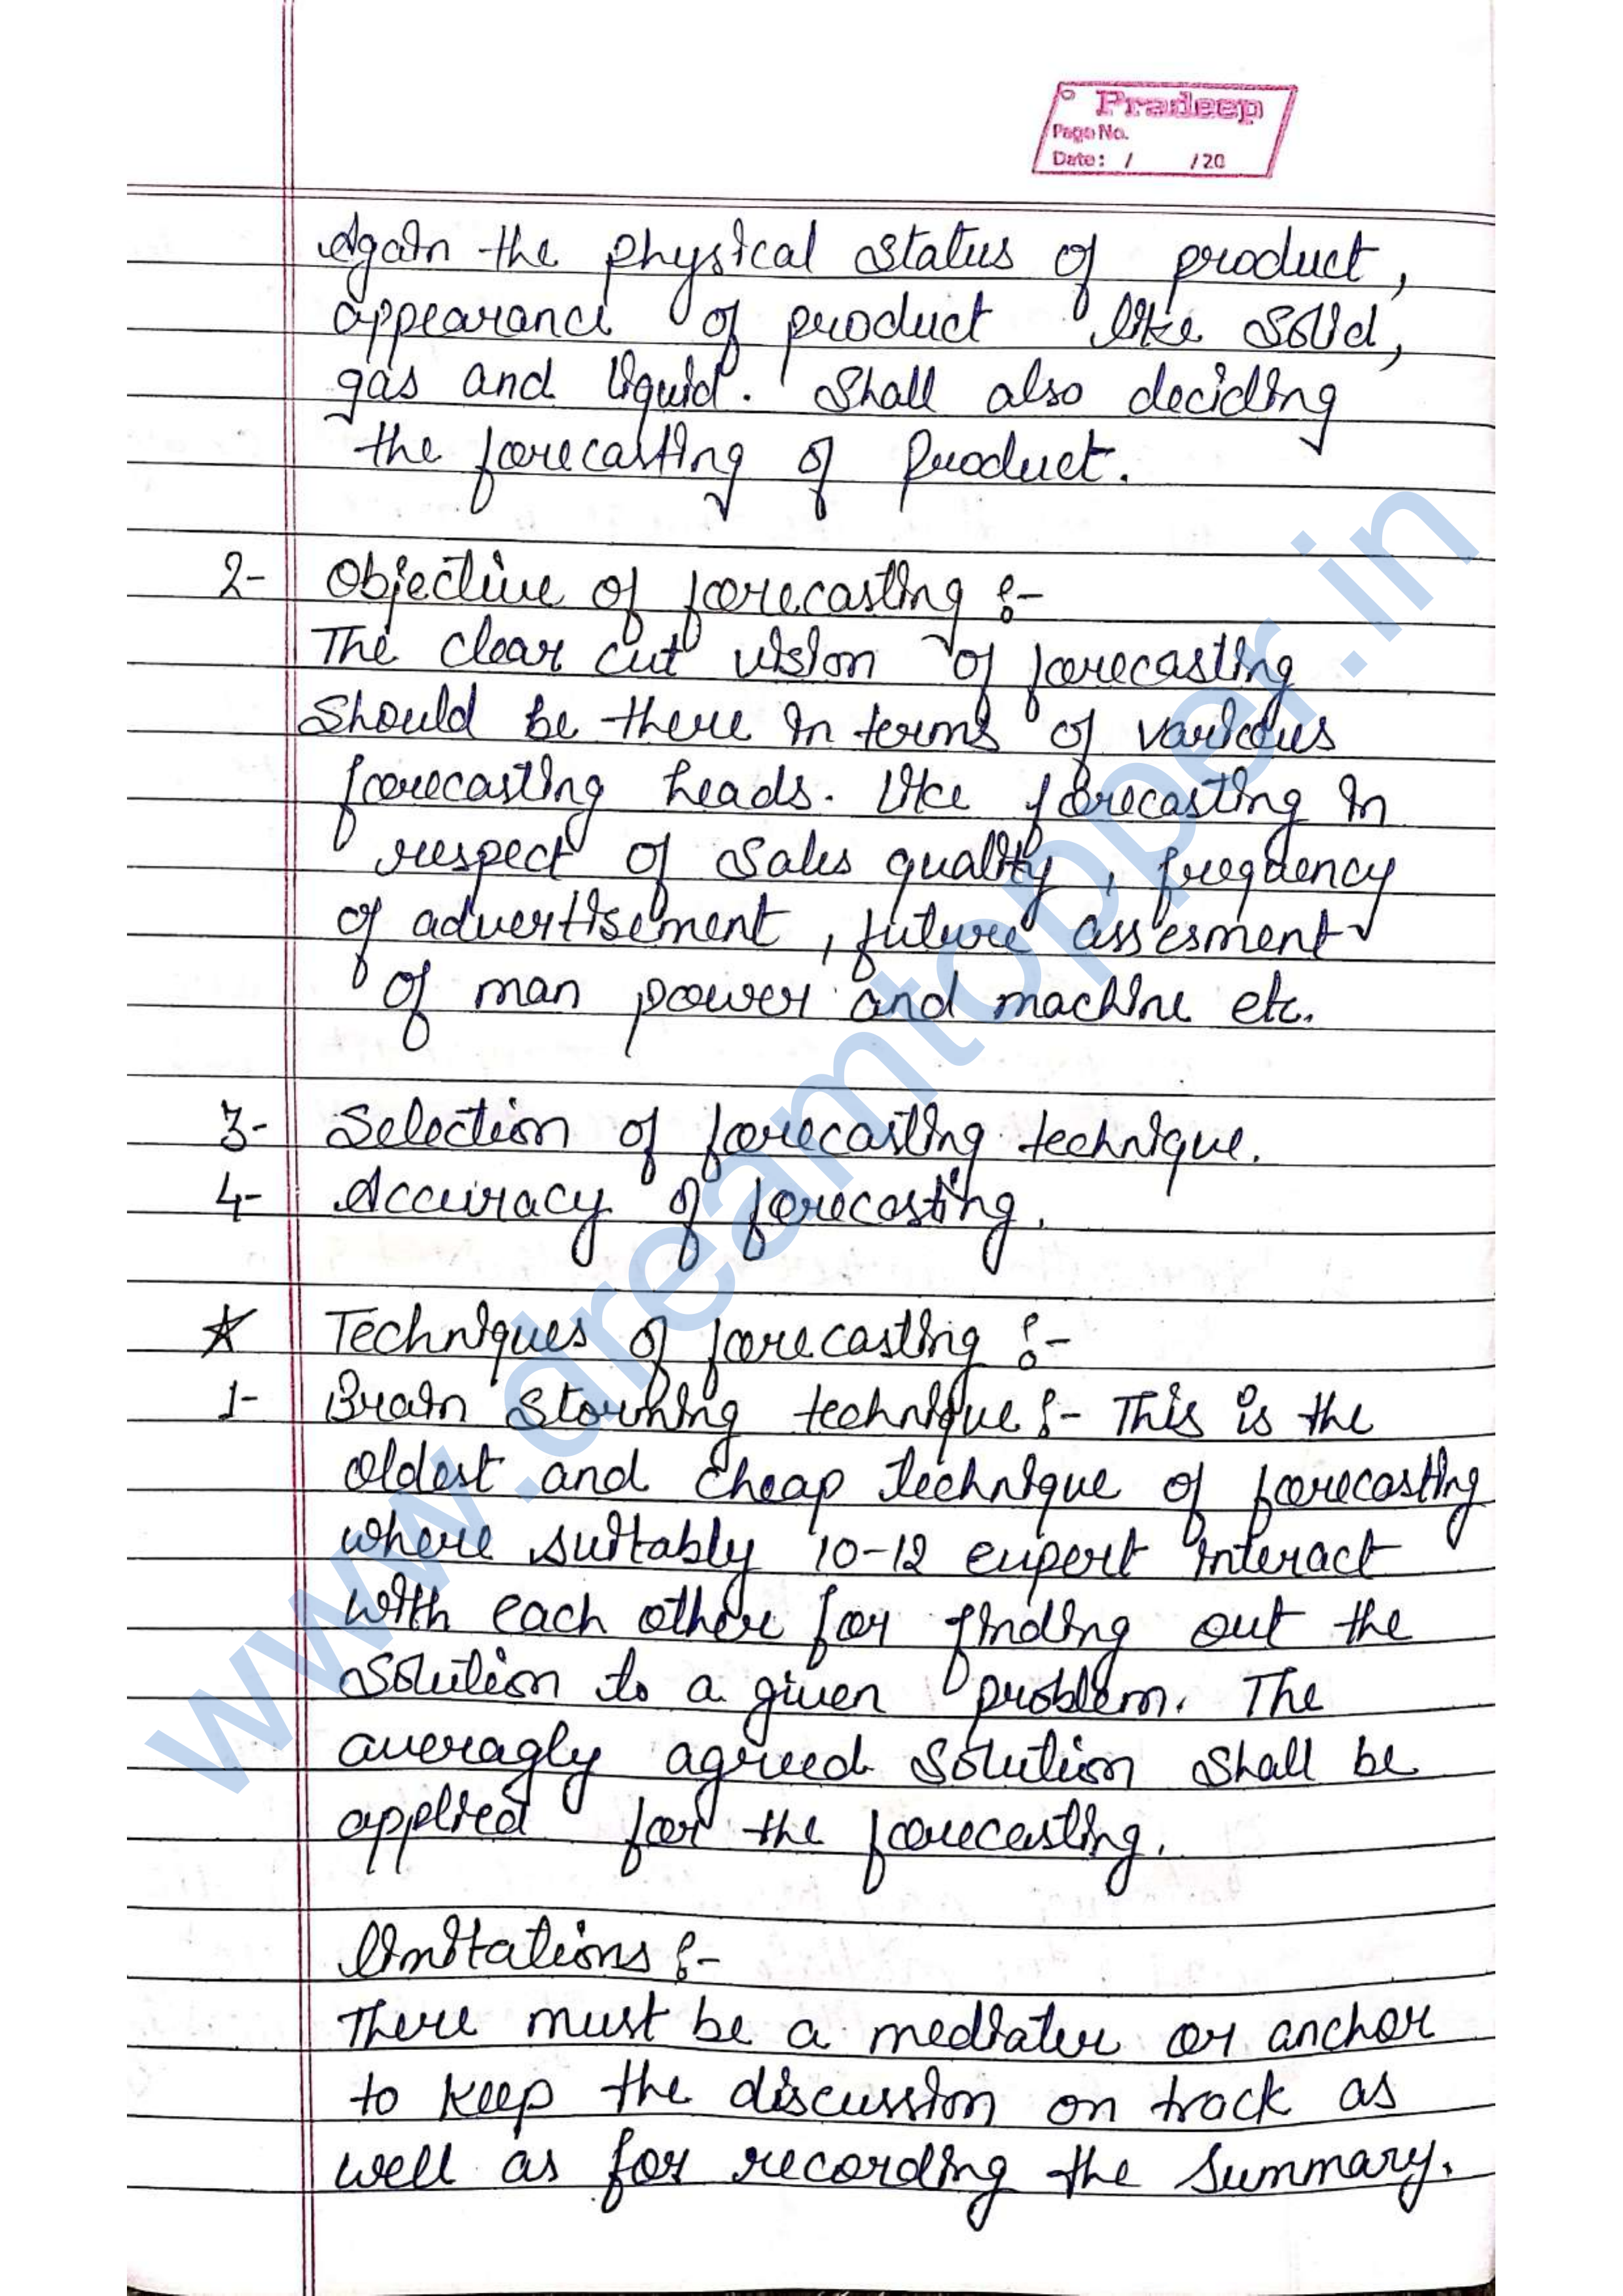 Pradeep
Page No.
Date: / /20
Again the physical status of product,
appearance of product like solid,
gas and liquid. Shall also deciding
the forecasting of Product.
2- Objective of forecasting :-
The clear cut vision of forecasting
should be there in terms of various
forecasting heads. Like forecasting in
respect of sales quality, frequency
of advertisement, future assesment
of man power and machine etc.
3- Selection of forecasting technique.
4- Accuracy of forecasting.
☆ Techniques of forecasting :-
1- Brain Storming technique :- This is the
oldest and cheap technique of forecasting
where suitably 10-12 expert interact
with each other for finding out the
solution to a given problem. The
averagly agreed solution shall be
applied for the forecasting.
limitations :-
There must be a mediater or anchor
to keep the discussion on track as
well as for recording the summary.
www.dreamtopper.in